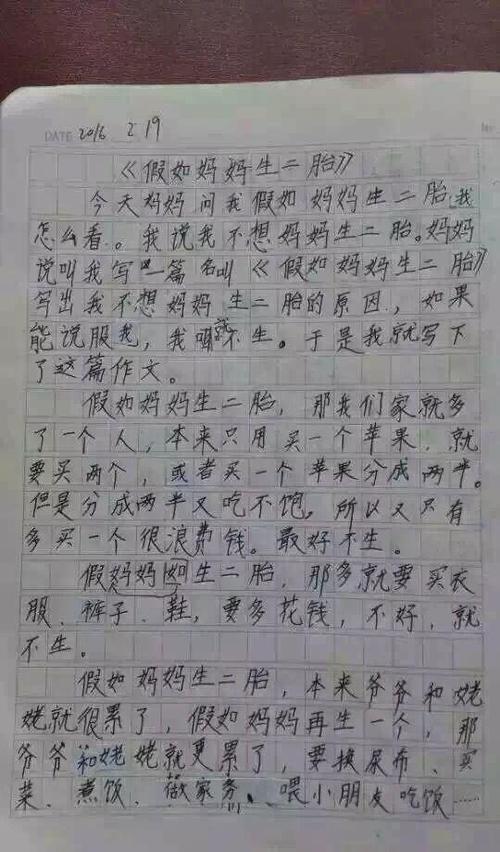 DATE 2016 2 19
《假如妈妈生二胎》
今天妈妈问我假如妈妈生二胎,我
怎么看。我说我不想妈妈生二胎。妈妈
说叫我写一篇名叫《假如妈妈生二胎》
写出我不想妈妈生二胎的原因,如果
能说服我,我就不生。于是我就写下
了这篇作文。
假如妈妈生二胎,那我们家就多
了一个人,本来只用买一个苹果,就
要买两个,或者买一个苹果分成两半。
但是分成两半又吃不饱,所以又只有
多买一个很浪费钱。最好不生。
假妈妈如生二胎,那多就要买衣
服、裤子、鞋,要多花钱,不好,就
不生。
假如妈妈生二胎,本来爷爷和姥
姥就很累了,假如妈妈再生一个,那
爷爷和姥姥就更累了,要换尿布、买
菜、煮饮、做家务、喂小朋友吃饭……